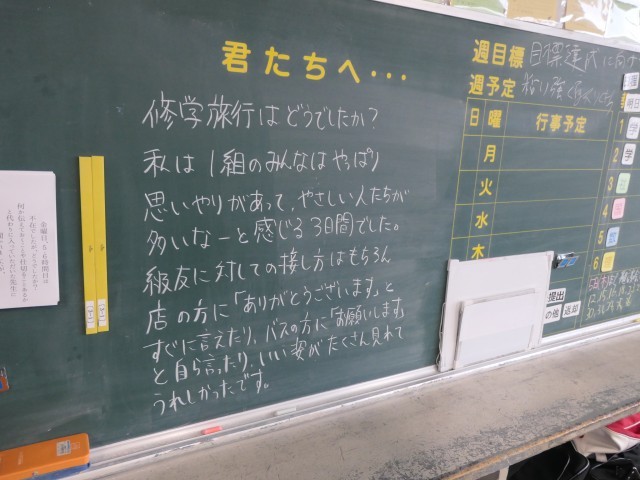 君たちへ・・・
修学旅行はどうでしたか？
私は1組のみんなはやっぱり
思いやりがあって、やさしい人たちが
多いなーと感じる3日間でした。
級友に対しての接し方はもちろん
店の方に「ありがとうございます」と
すぐに言えたり、バスの方に「お願いします」
と自ら言ったり、いい姿がたくさん見れて
うれしかったです。
週目標 目標達成に向け
週予定 粘り強く
日 曜 行事予定
月
火
水
木
2 学
3
4
5
6
提出
の他 返却